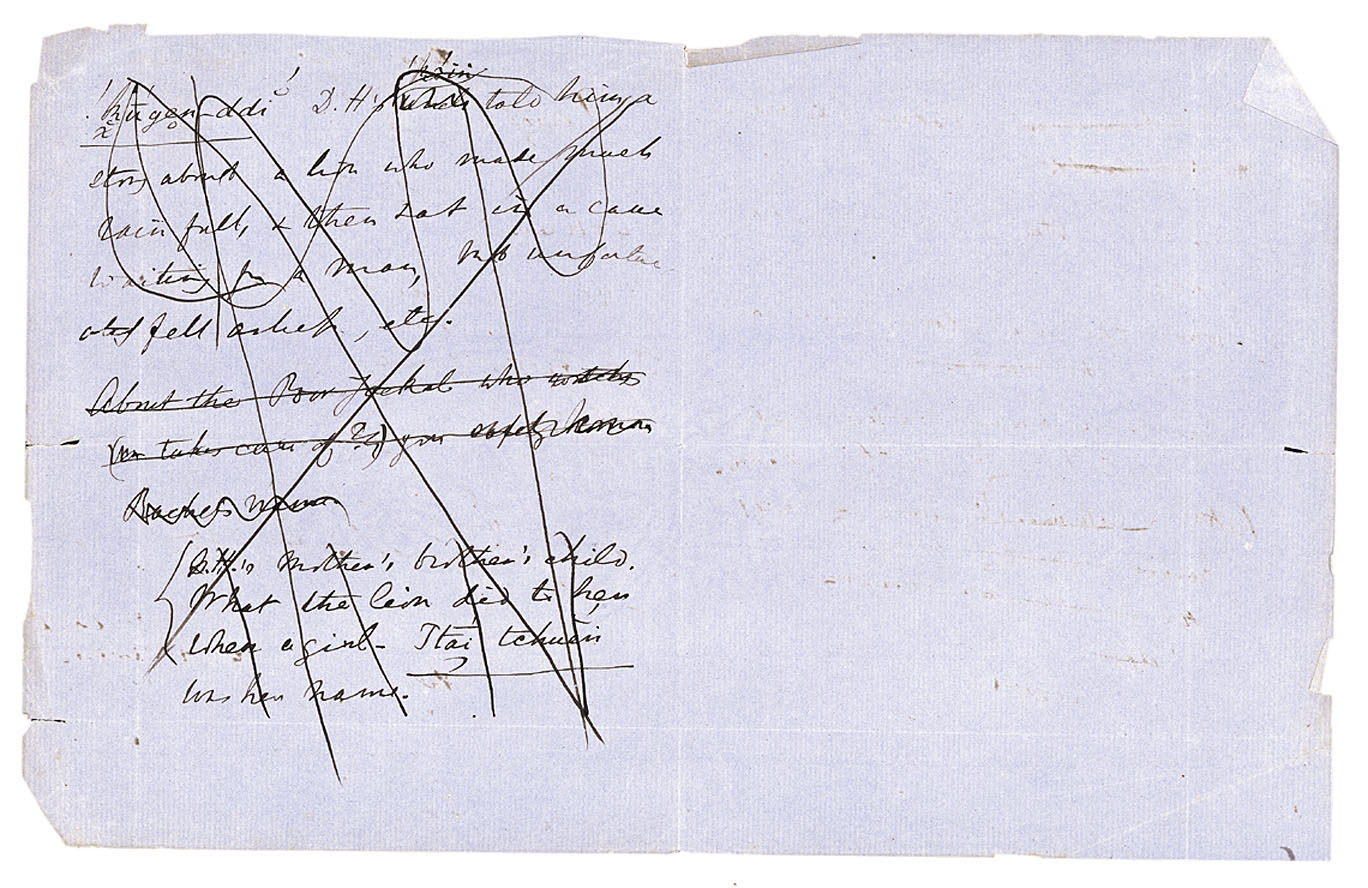 D.H's told him a
story about a lion who made much
rain fall, & then sat in a cave
waiting for a man, but unfortun-
ately fell asleep, etc.
About the Poor Jackal who
(or takes care of it) you
name
D.H.'s mother's brother's child.
What the lion did to her
when a girl-
was her name.